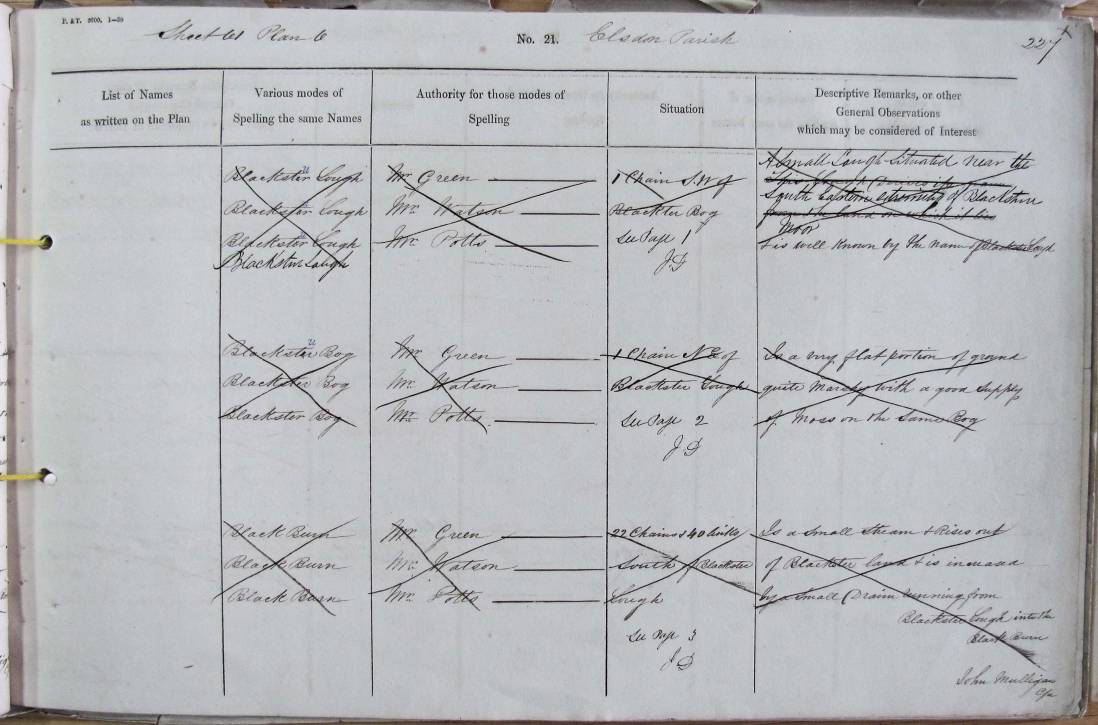 P. & T. 2000. 1—59
Sheet 61 Plan 6
No. 21.
Elsdon Parish
227
List of Names
as written on the Plan
Various modes of
Spelling the same Names
Authority for those modes of
Spelling
Situation
Descriptive Remarks, or other
General Observations
which may be considered of Interest
Blackster Lough
Blackster Lough
Blackster Lough
Blackstur Lough
Mr. Green
Mr. Watson
Mr. Potts
1 Chain S.W of
Blackster Bog
See Page 1
J.D
A Small Lough Situated near the
South Eastern extremity of
Moor
& is well Known by the name of
u
Blackster Bog
Blackster Bog
Blackster Bog
Mr. Green
Mr. Watson
Mr. Potts
1 Chain N.E of
Blackster Lough
See Page 2
J D
Is a very flat portion of ground
quite Marshy with a good Supply
of Moss on the Same Bog
Black Burn
Black Burn
Black Burn
Mr. Green
Mr. Watson
Mr. Potts
22 Chains & 40 links
South of Blackster
Lough
See Page 3
J D
Is a Small Steam & Rises out
of Blackster land & is increased
by a Small Drain running from
Blackster Lough into the
Black Burn
John Mulligan